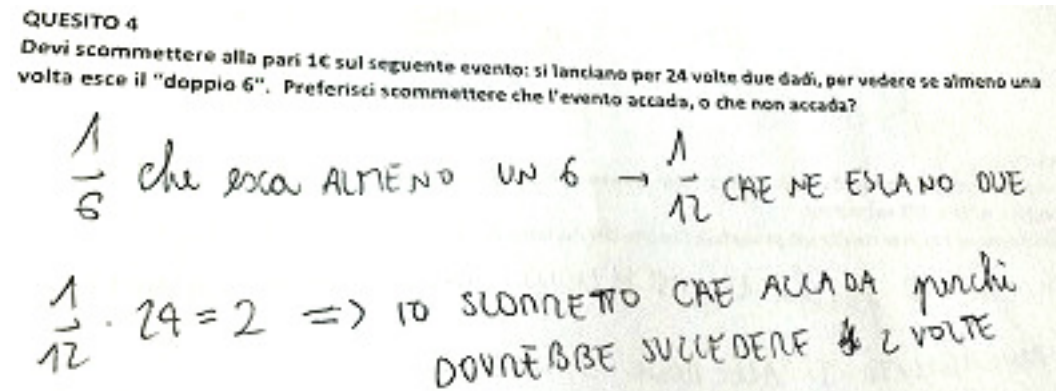 QUESITO 4
Devi scommettere alla pari 1€ sul seguente evento: si lanciano per 24 volte due dadi, per vedere se almeno una
volta esce il "doppio 6". Preferisci scommettere che l'evento accada, o che non accada?
1/6 che esca ALMENO UN 6 → 1/12 CHE NE ESCANO DUE
1/12 · 24 = 2 => IO SCOMMETTO CHE ACCADA perchi
DOVREBBE SUCCEDERE 2 VOLTE